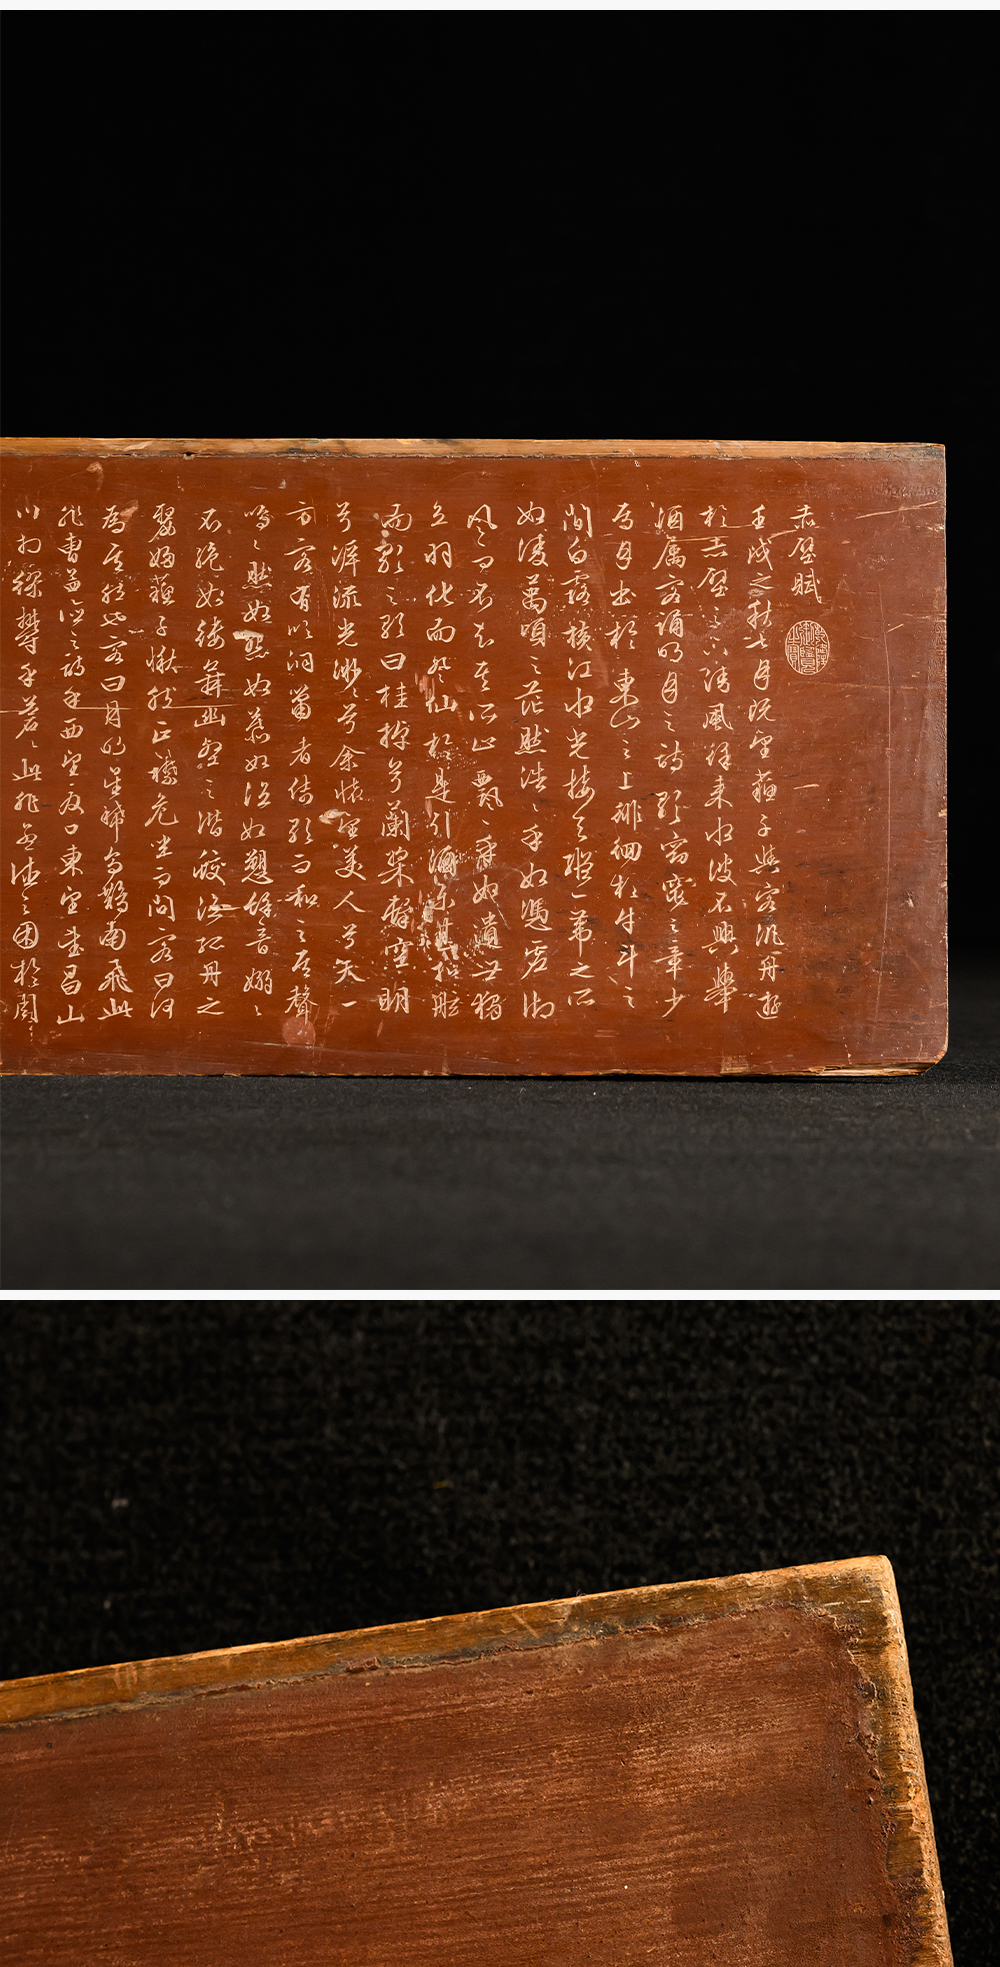 赤壁賦
乾隆御覽之寶
壬戌之秋七月既望蘇子與客汎舟遊
於赤壁之下清風徐來水波不興舉
酒屬客誦明月之詩歌窈窕之章少
焉月出於東山之上徘徊於牛斗之
間白露橫江水光接天縱一葦之所
如凌萬頃之茫然浩浩乎如憑虛御
風而不知其所止飄飄乎如遺世獨
立羽化而登仙於是引酒樂甚扣舷
而歌之歌曰桂棹兮蘭槳擊空明
兮泝流光渺渺兮余懷望美人兮天一
方客有吹洞簫者倚歌而和之其聲
嗚嗚然如怨如慕如泣如愬餘音嫋嫋
不絕如縷舞幽壑之潛蛟泣孤舟之
嫠婦蘇子愀然正襟危坐而問客曰何
為其然也客曰月明星稀烏鵲南飛此
非曹孟德之詩乎西望夏口東望武昌山
川相繆鬱乎蒼蒼此非孟德之困於周